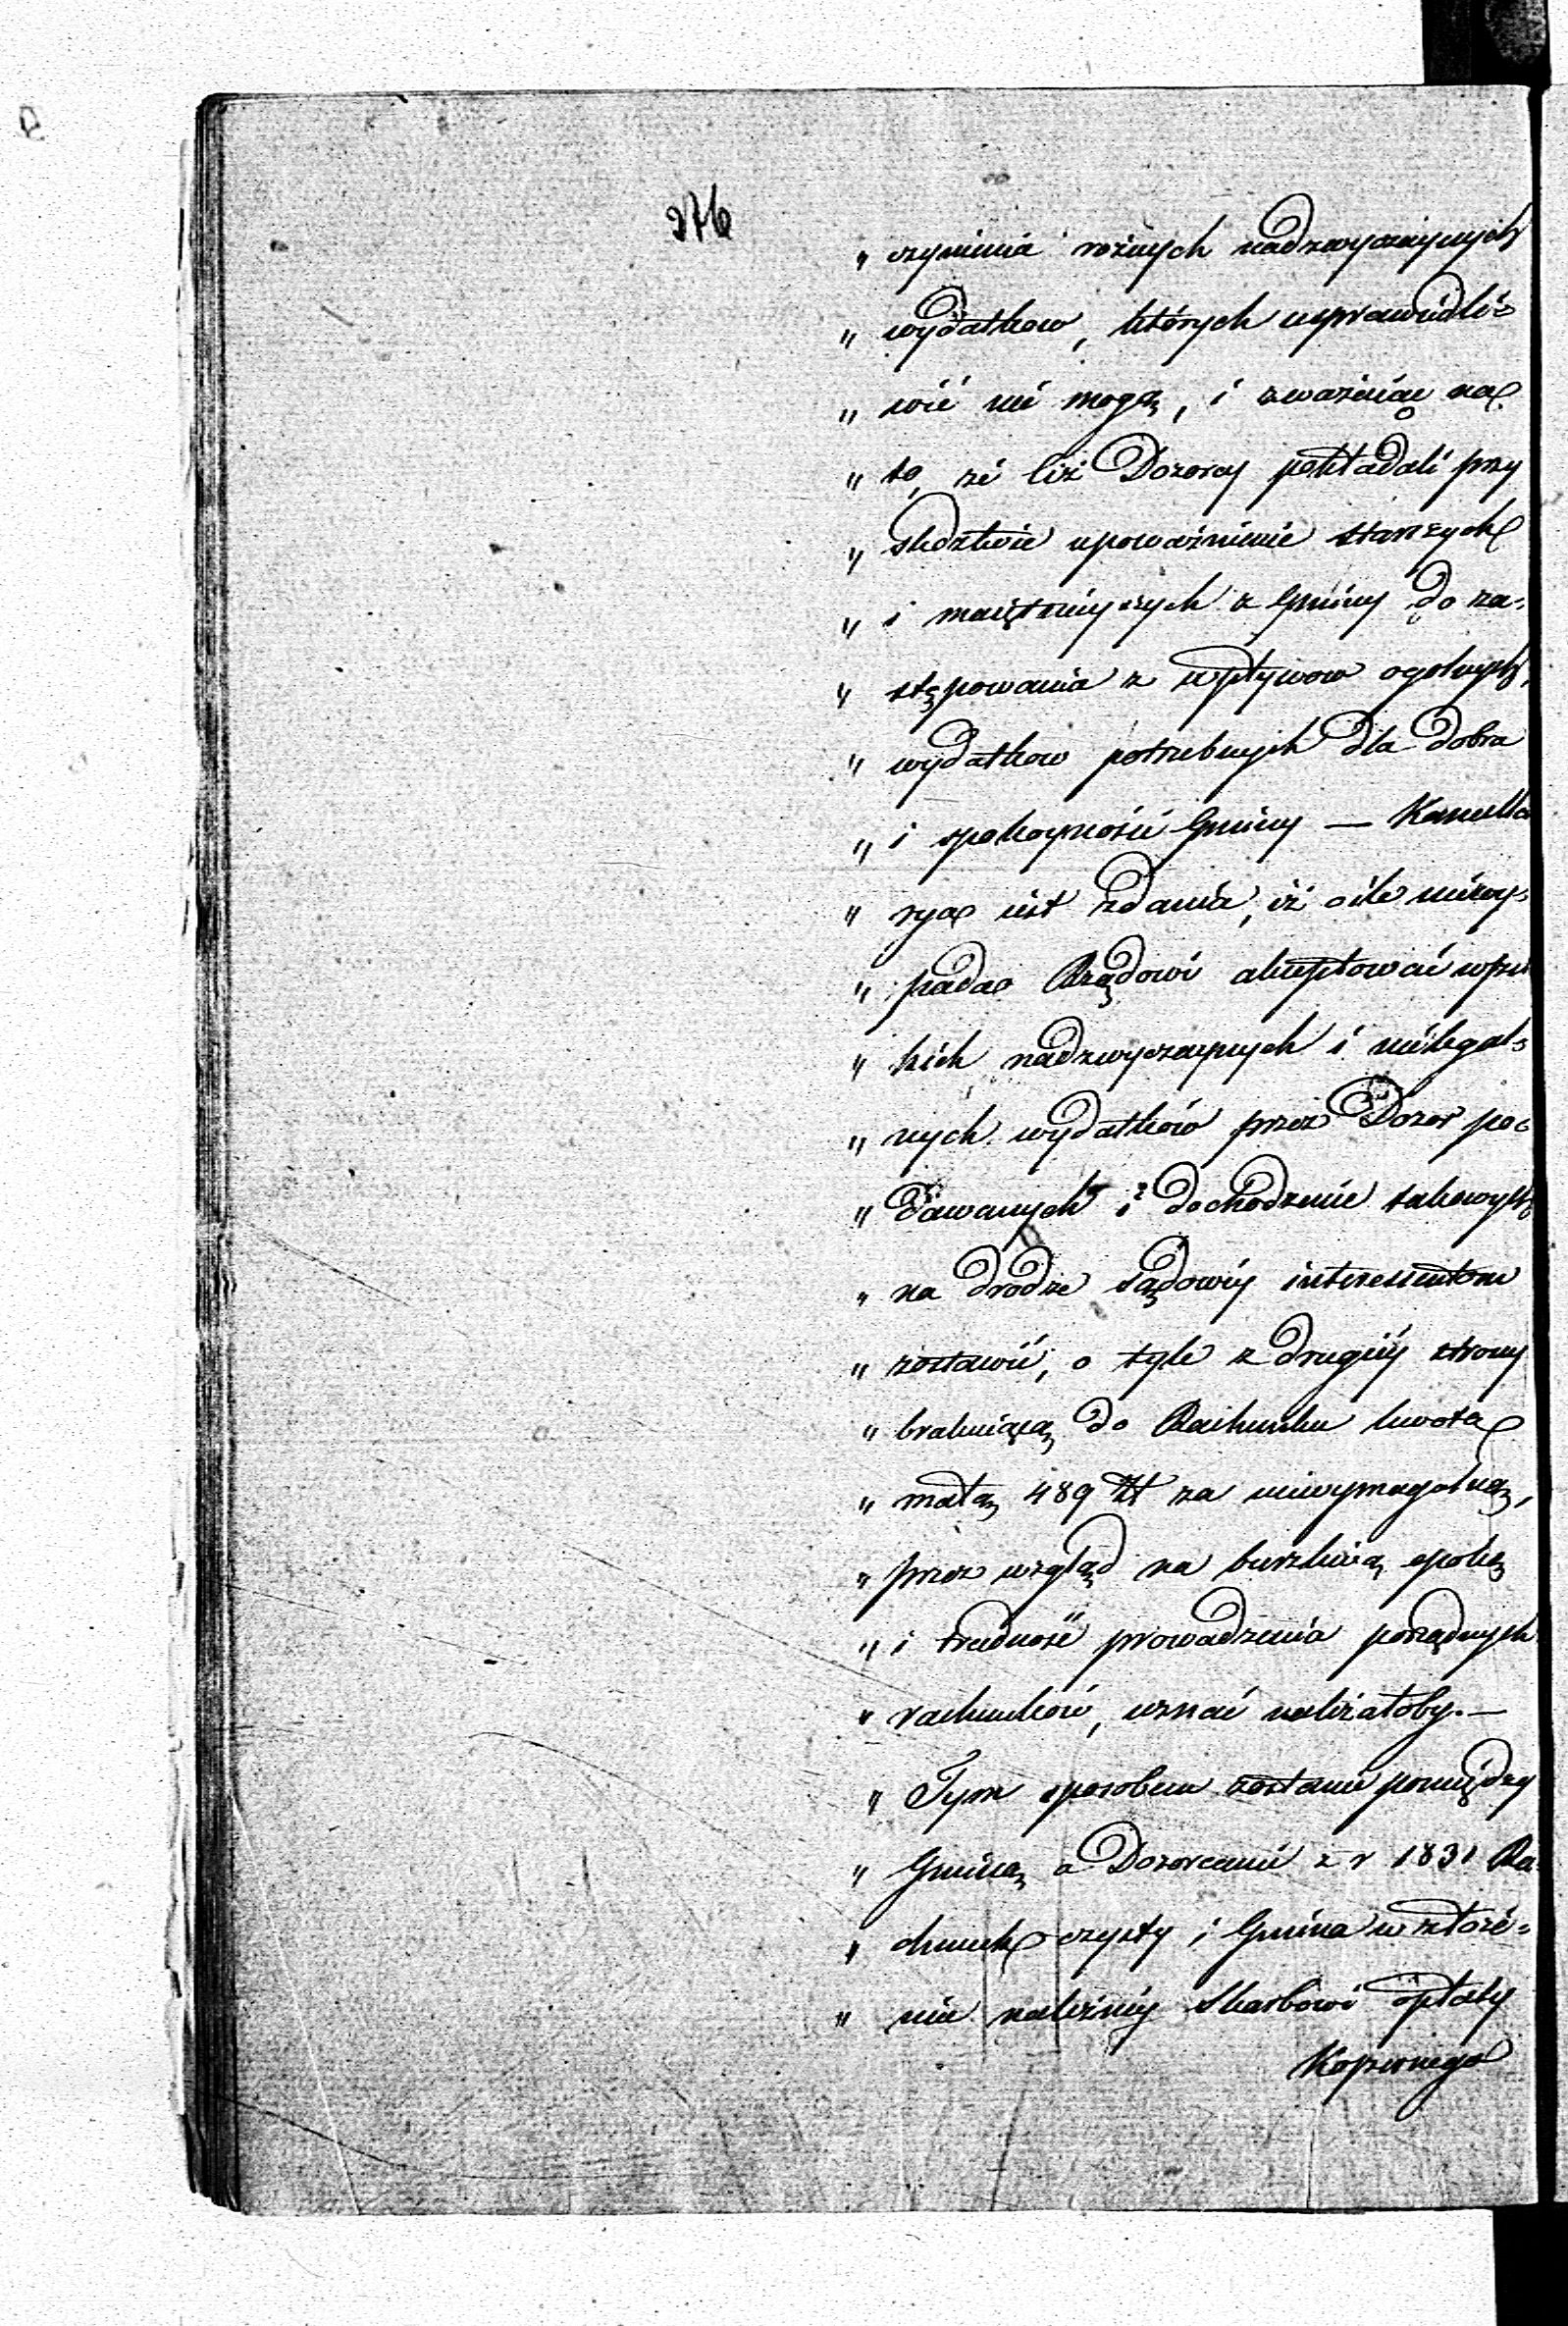 276
" czynienia rożnych nadzwyczaynych
" wydatkow, których usprawiedli=
" wić nie mogą, i zważaiąc na
" to, że ciż Dozorcy pokładali przy
" śledztwie upoważnienie starszych
" i maiętnieyszych z Gminy do za=
" stępowania z wpływow ogolnych,
" wydatkow potrzebnych dla dobra
" i spokoyności Gminy — Kancella
" rya iest zdania, iż o ile niewy=
" pada Rządowi akceptować wszel
" kich nadzwyczaynych i nielegal=
" nych wydatków przez Dozor po=
" dawanych i dochodzenie takowych
" na drodze sądowéy interessentom
" zostawić, o tyle z drugiéy strony
" brakuiącą do Rachunku kwotę
" małą 489 Zł za niewymagalną,
" przez wzgląd na burzliwą epokę
" i trudność prowadzenia porządnych
" rachunków, uznać należałoby. —
" Tym sposobem zostanie pomiędzy
" Gminą a Dozorcami z r 1831 Ra
" chunek czysty i Gmina w złoże=
" nie należnéy Skarbowi opłaty
Koszernego